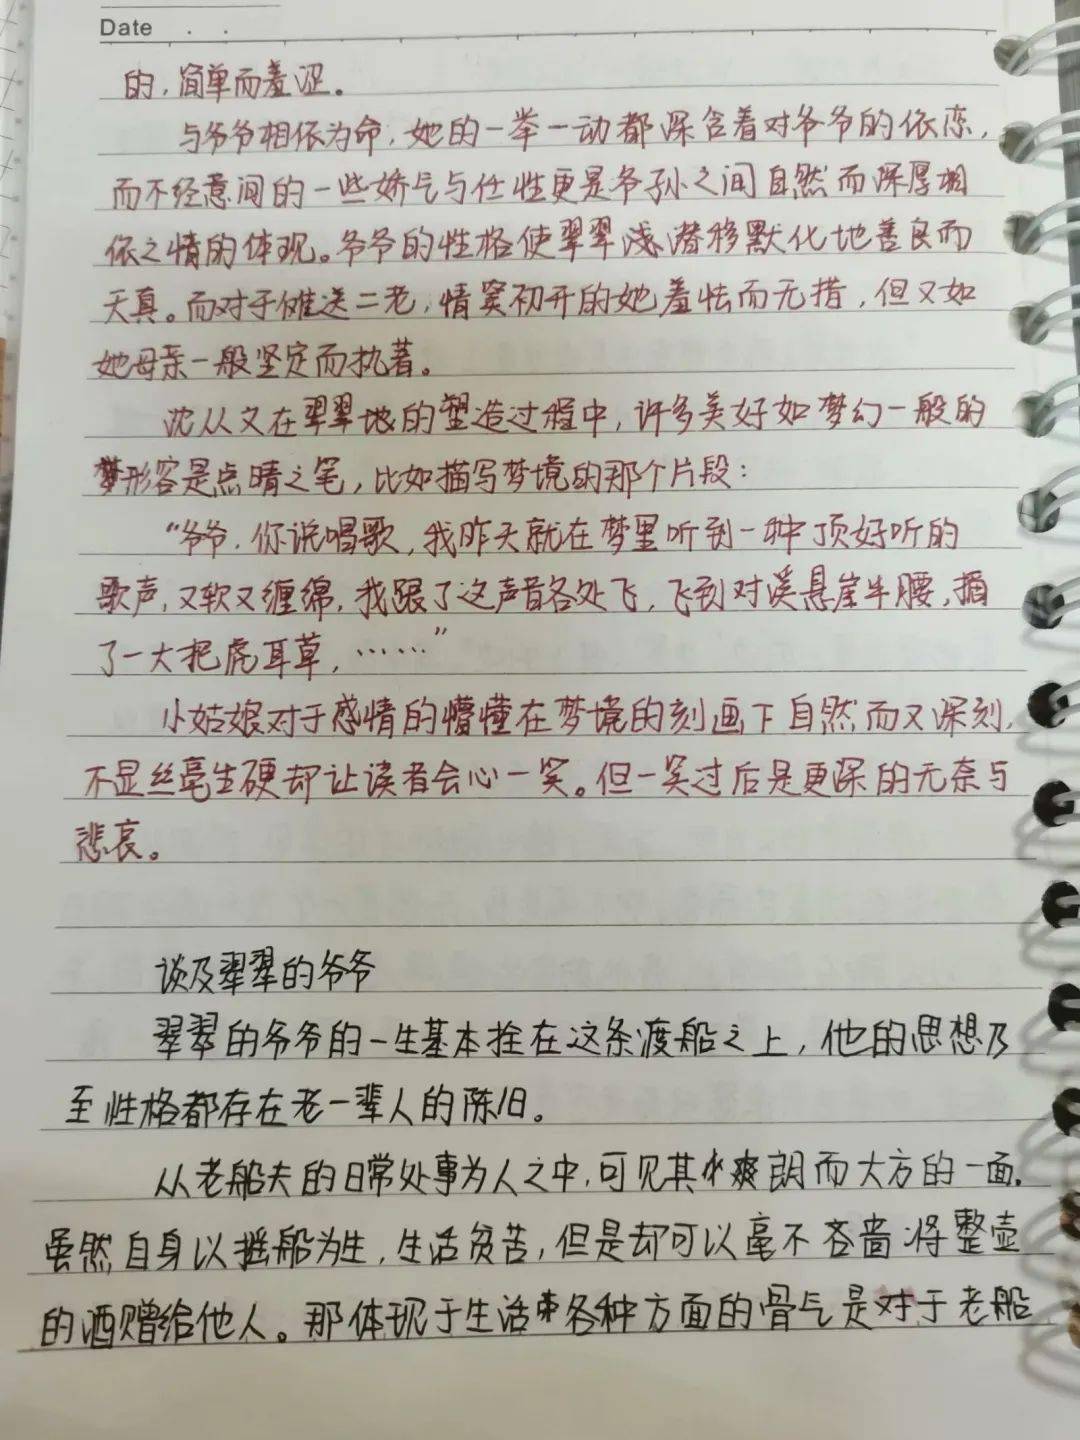 Date
的,简单而羞涩。
与爷爷相依为命,她的一举一动都深含着对爷爷的依恋,
而不经意间的一些娇气与任性更是爷孙之间自然而深厚相
依之情的体现。爷爷的性格使翠翠浅潜移默化地善良而
天真。而对于傩送二老,情窦初开的她羞怯而无措,但又如
她母亲一般坚定而执著。
沈从文在翠翠地的塑造过程中,许多美好如梦幻一般的
梦形容是点睛之笔,比如描写梦境的那个片段:
“爷爷,你说唱歌,我昨天就在梦里听到一种顶好听的
歌声,又软又缠绵,我跟了这声音各处飞,飞到对溪悬崖半腰,摘
了一大把虎耳草,……”
小姑娘对于感情的懵懂在梦境的刻画下自然而又深刻,
不显丝毫生硬却让读者会心一笑。但一笑过后是更深的无奈与
悲哀。
谈及翠翠的爷爷
翠翠的爷爷的一生基本拴在这条渡船之上,他的思想乃
至性格都存在老一辈人的陈旧。
从老船夫的日常处事为人之中,可见其爽朗而大方的一面。
虽然自身以摇船为生,生活贫苦,但是却可以毫不吝啬将整壶
的酒赠给他人。那体现于生活各种方面的骨气是对于老船